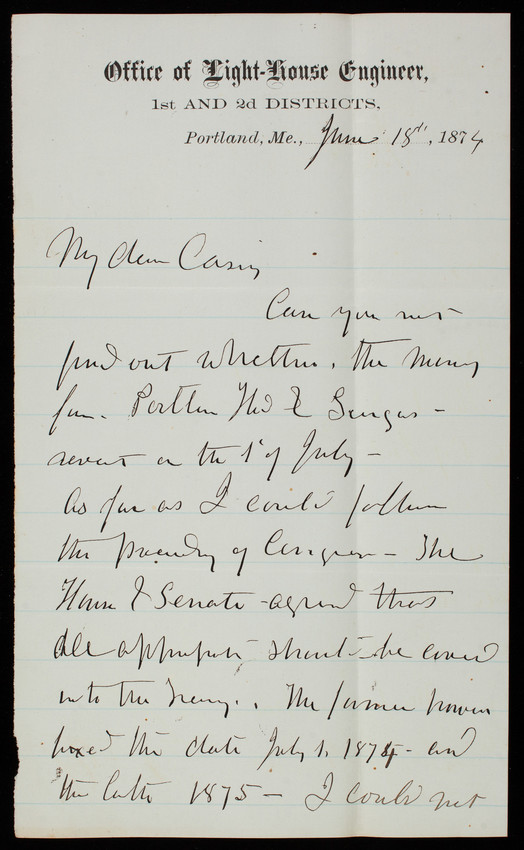 Office of Light-House Engineer,
1st AND 2d DISTRICTS,
Portland, Me., June 18th, 1874
My dear Casey
Can you not
find out whether the money
for Portland Hd &
revert on the 1st of July -
As far as I could follow
the proceedings of Congress - The
House & Senate agreed that
all appropriatns should be covered
into the Treasy. The former however
fixed the date July 1, 1874 - and
the latter 1875 - I could not